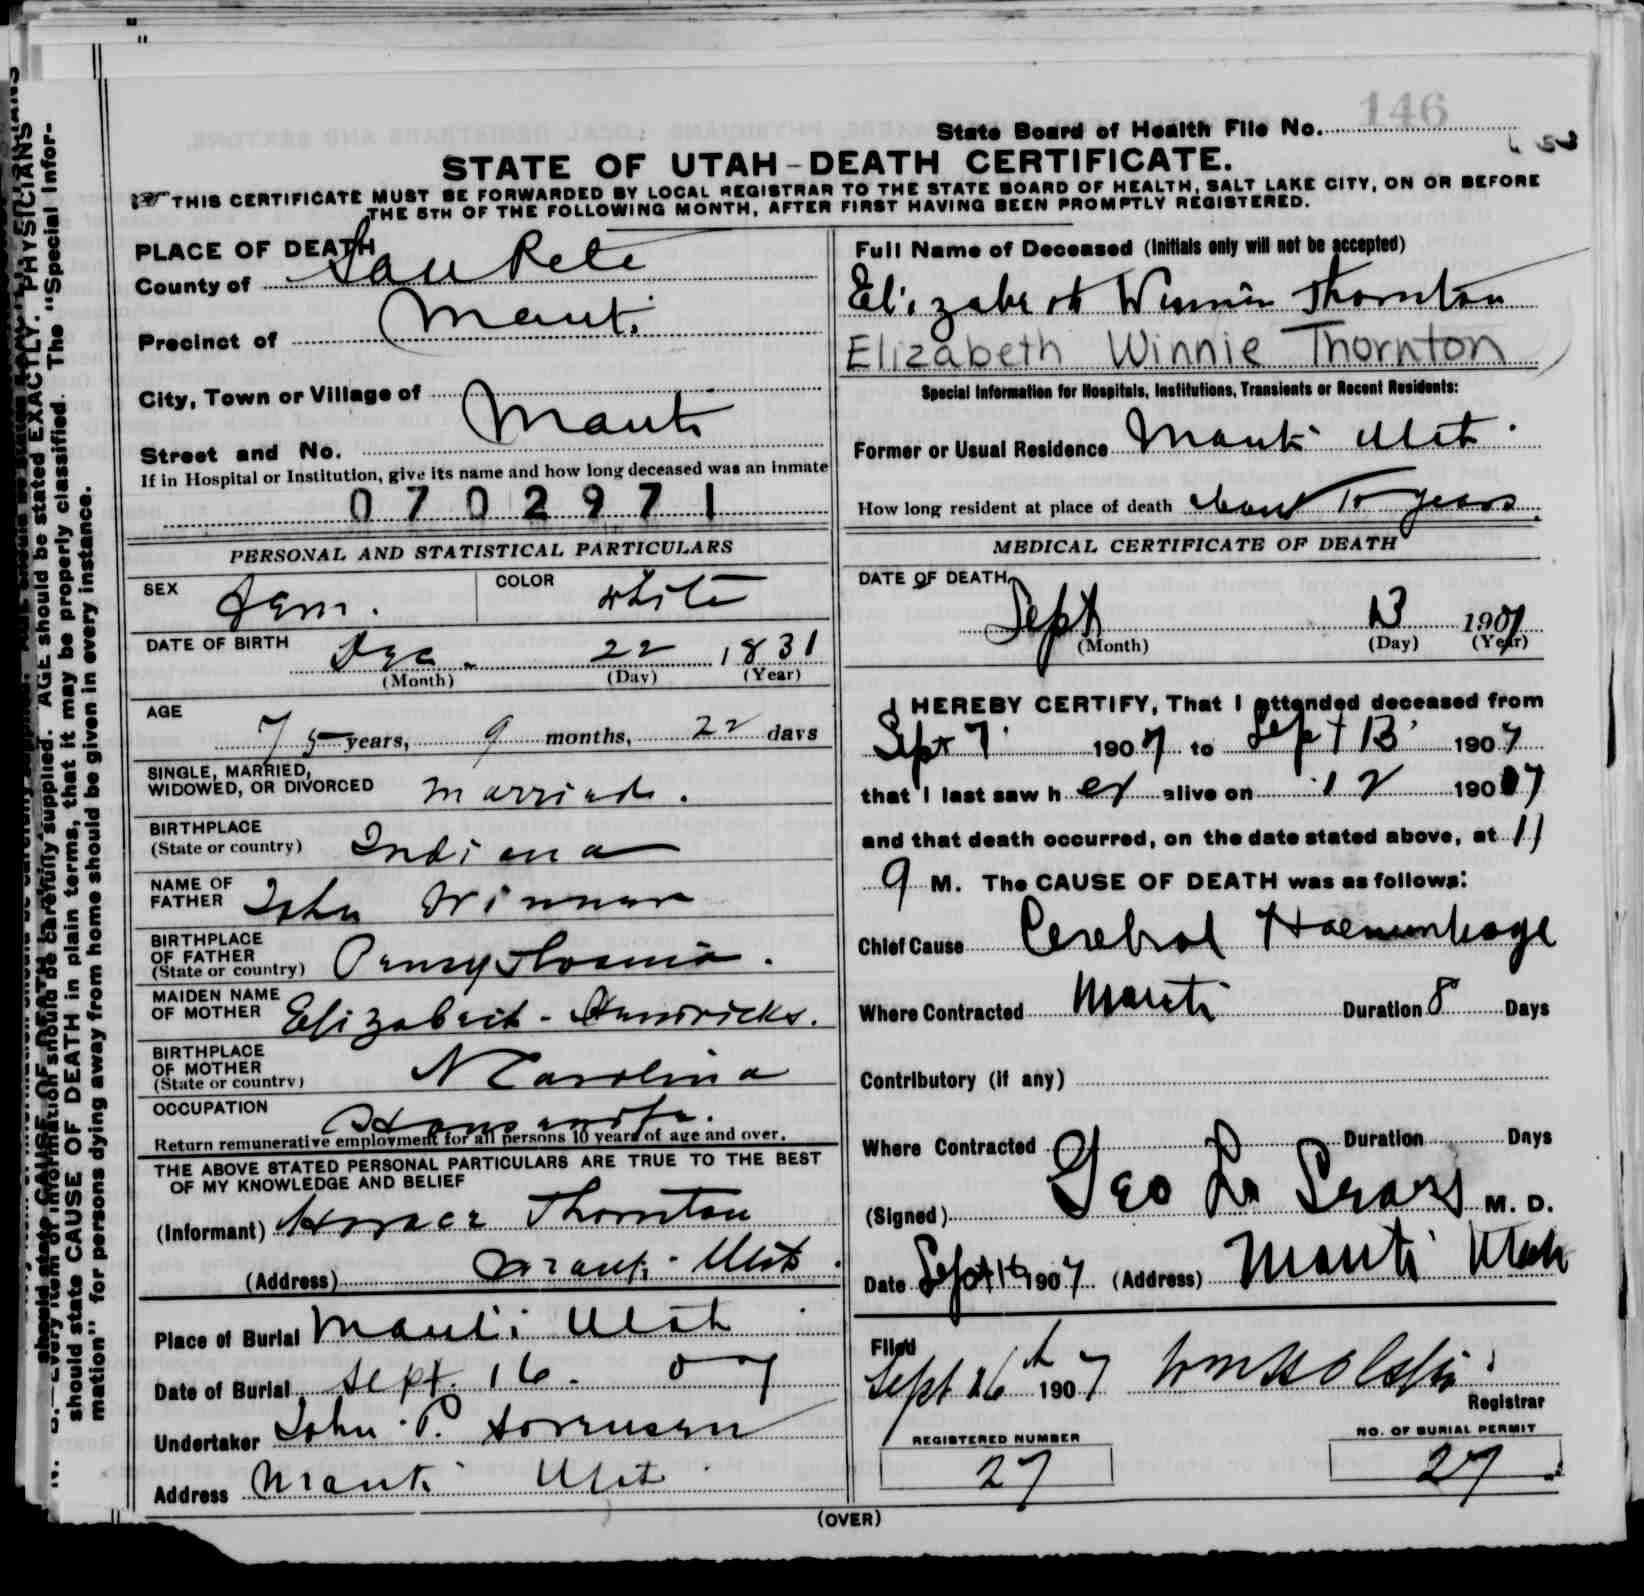 146
State Board of Health File No.
STATE OF UTAH-DEATH CERTIFICATE.
THIS CERTIFICATE MUST BE FORWARDED BY LOCAL REGISTRAR TO THE STATE BOARD OF HEALTH, SALT LAKE CITY, ON OR BEFORE
THE 5TH OF THE FOLLOWING MONTH, AFTER FIRST HAVING BEEN PROMPTLY REGISTERED.
PLACE OF DEATH
County of San Pete
Precinct of Manti
City, Town or Village of
Manti
Street and No.
If in Hospital or Institution, give its name and how long deceased was an inmate
0702971
PERSONAL AND STATISTICAL PARTICULARS
SEX Fem. COLOR White
DATE OF BIRTH
Dec. 22 1831
(Month) (Day) (Year)
AGE
75 years, 9 months, 22 days
SINGLE, MARRIED,
WIDOWED, OR DIVORCED Married.
BIRTHPLACE
(State or country) Indiana
NAME OF
FATHER John
BIRTHPLACE
OF FATHER
(State or country) Pennsylvania.
MAIDEN NAME
OF MOTHER Elizabeth - Hendricks.
BIRTHPLACE
OF MOTHER
(State or country) N Carolina
OCCUPATION Housewife.
Return remunerative employment for all persons 10 years of age and over.
THE ABOVE STATED PERSONAL PARTICULARS ARE TRUE TO THE BEST
OF MY KNOWLEDGE AND BELIEF
(Informant) Horace Thornton
(Address) Manti - Utah.
Place of Burial Manti Utah
Date of Burial Sept. 16. 07
Undertaker John P. Sorensen
Address Manti Utah
Full Name of Deceased (Initials only will not be accepted)
Elizabeth Winnie Thornton
Elizabeth Winnie Thornton
Special Information for Hospitals, Institutions, Transients or Recent Residents:
Former or Usual Residence Manti Utah.
How long resident at place of death about years
MEDICAL CERTIFICATE OF DEATH
DATE OF DEATH
Sept 13 1907
(Month) (Day) (Year)
I HEREBY CERTIFY, That I attended deceased from
Sept 7 1907 to Sept 13 1907
that I last saw her alive on 12 1907
and that death occurred, on the date stated above, at 11
M. The CAUSE OF DEATH was as follows:
Chief Cause Cerebral Haemorrhage
Where Contracted Manti Duration 8 Days
Contributory (if any)
Where Contracted Duration Days
(Signed) Geo L Sears M. D.
Date Sept 1907 (Address) Manti Utah
Filed
Sept 26th 1907
Registrar
REGISTERED NUMBER
27
NO. OF BURIAL PERMIT
27
(OVER)
should state CAUSE OF DEATH in plain terms, that it may be properly classified. The "Special Infor-
mation" for persons dying away from home should be given in every instance.